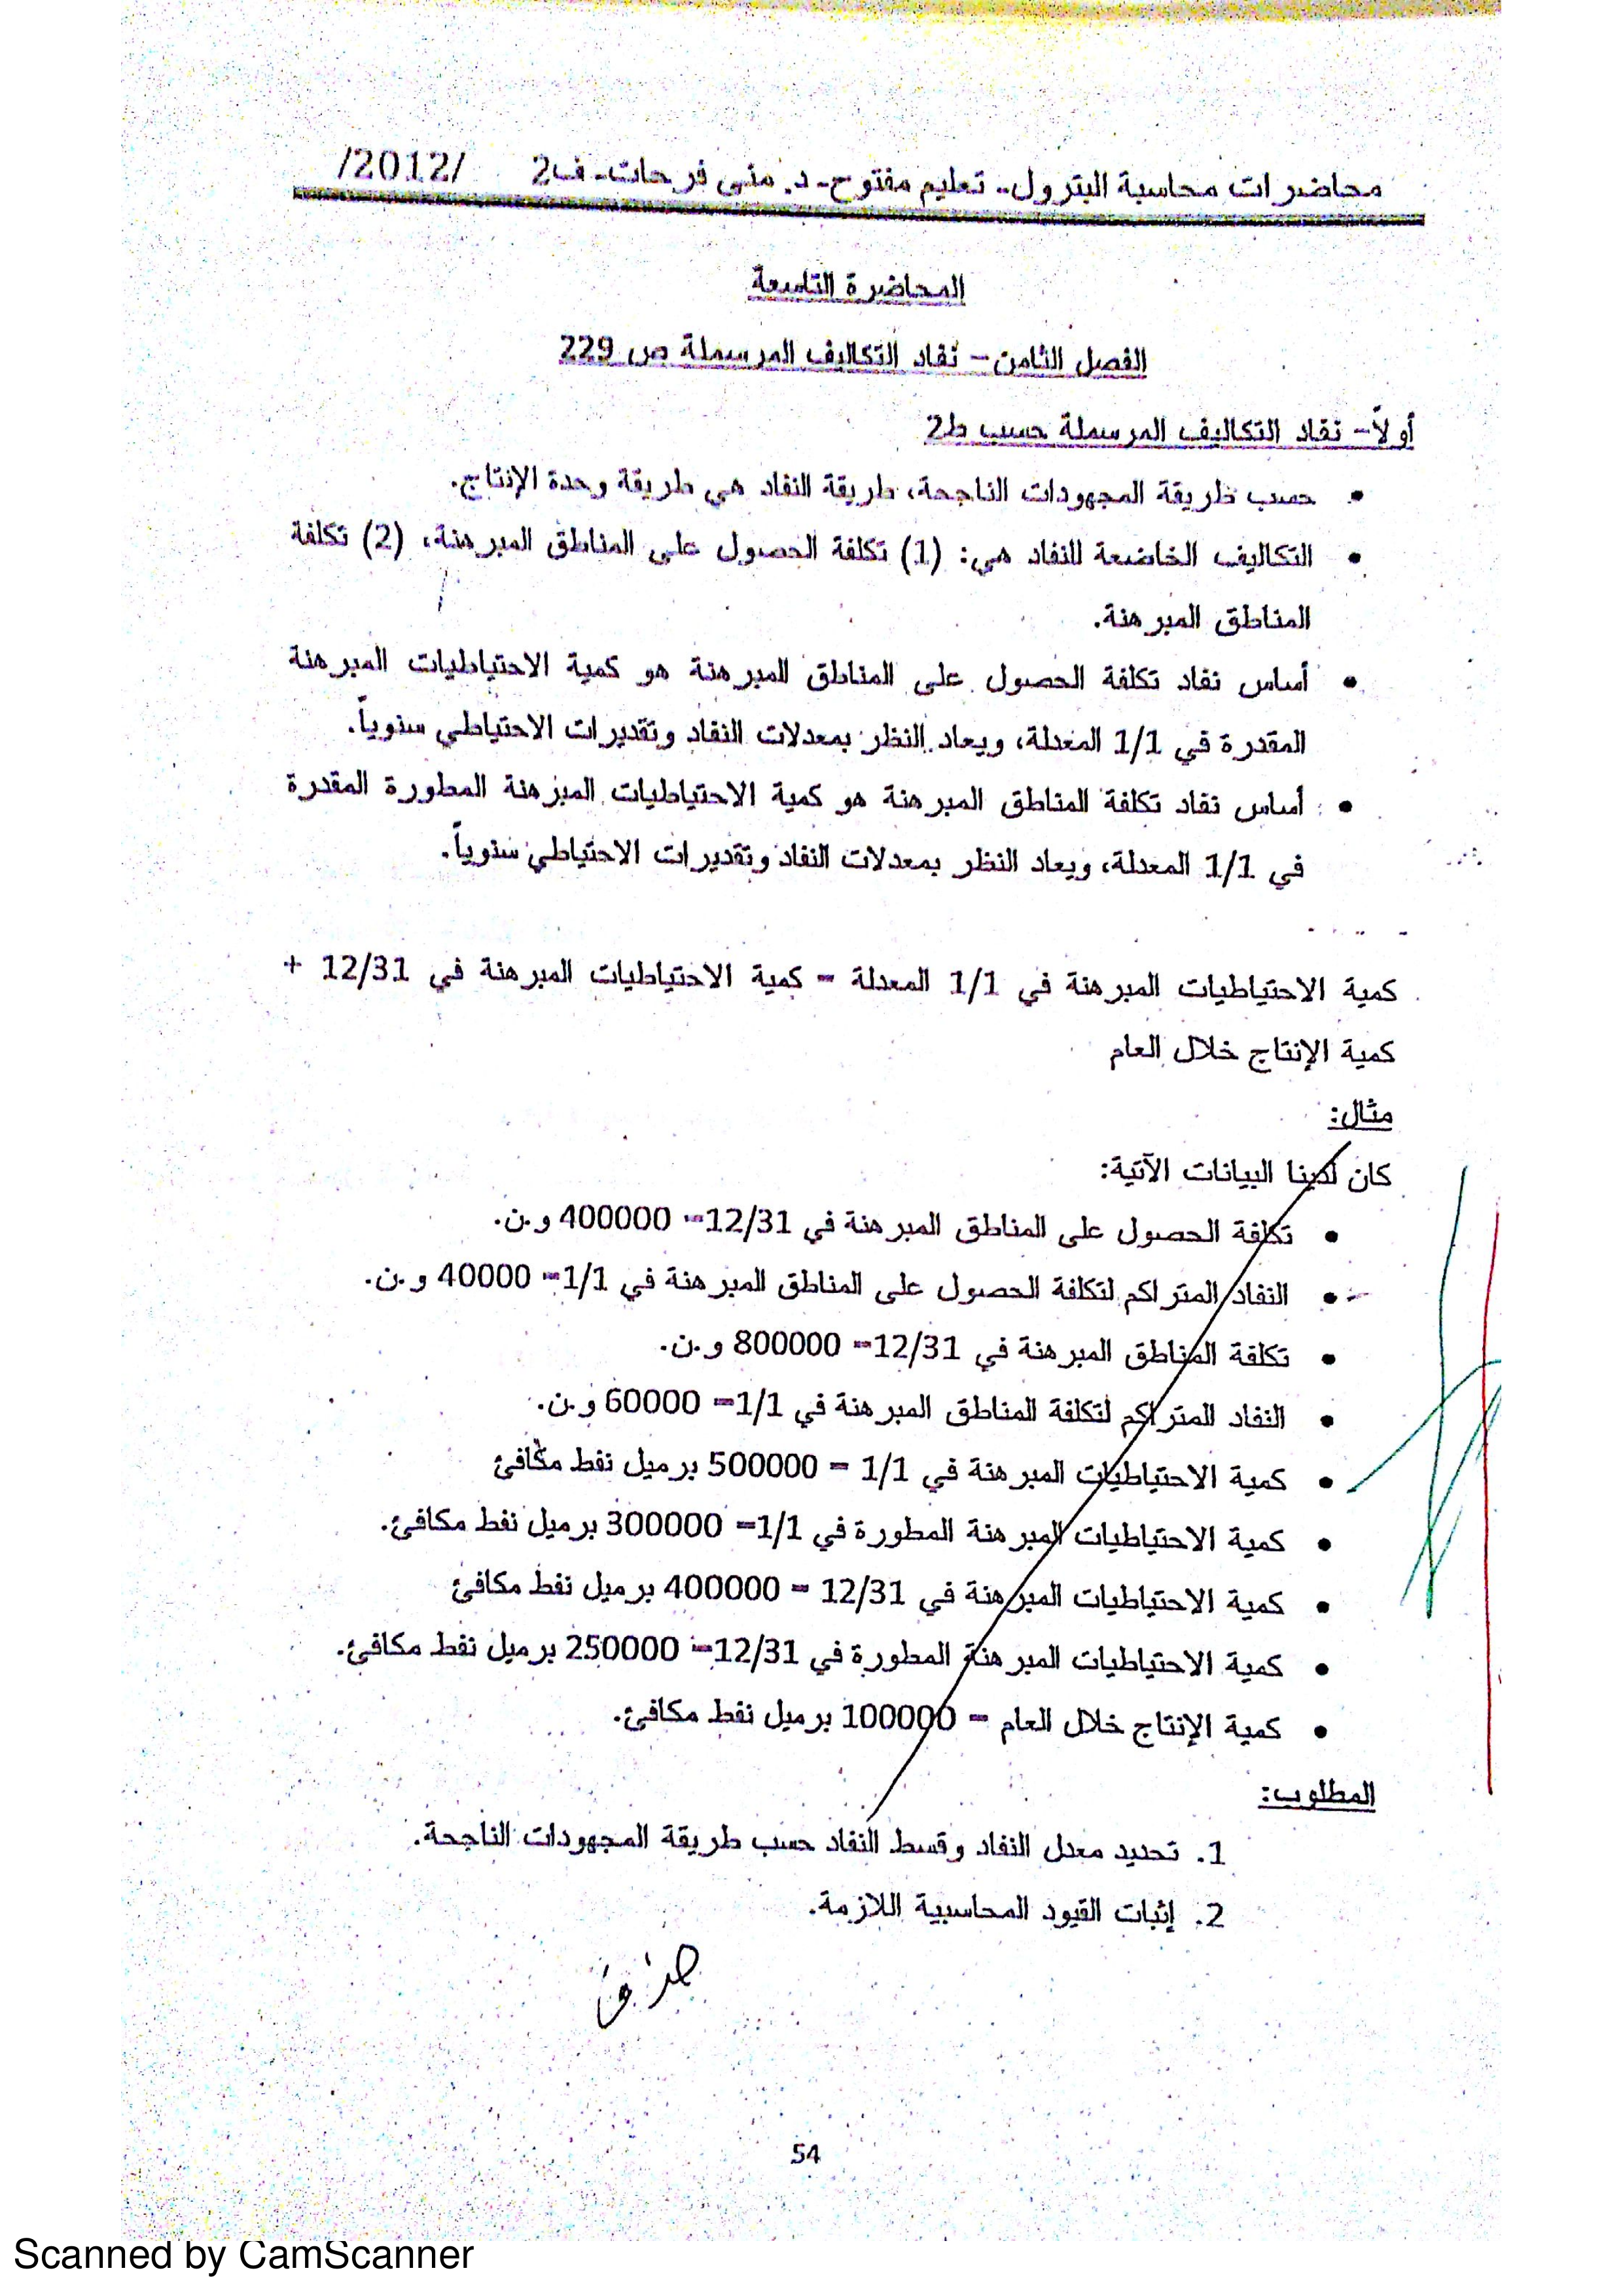 محاضرات محاسبة البترول- تعليم مفتوح- د. منى فرحات- ف2 /2012/
المحاضرة التاسعة
الفصل الثامن- نفاد التكاليف المرسملة ص 229
أولاً- نفاد التكاليف المرسملة حسب ط2
• حسب طريقة المجهودات الناجحة، طريقة النفاد هي طريقة وحدة الإنتاج.
• التكاليف الخاضعة للنفاد هي: (1) تكلفة الحصول على المناطق المبرهنة، (2) تكلفة
المناطق المبرهنة.
• أساس نفاد تكلفة الحصول على المناطق المبرهنة هو كمية الاحتياطيات المبرهنة
المقدرة في 1/1 المعدلة، ويعاد النظر بمعدلات النفاد وتقديرات الاحتياطي سنوياً.
• أساس نفاد تكلفة المناطق المبرهنة هو كمية الاحتياطيات المبرهنة المطورة المقدرة
في 1/1 المعدلة، ويعاد النظر بمعدلات النفاد وتقديرات الاحتياطي سنوياً.
كمية الاحتياطيات المبرهنة في 1/1 المعدلة = كمية الاحتياطيات المبرهنة في 12/31 +
كمية الإنتاج خلال العام
مثال:
كان لدينا البيانات الآتية:
• تكلفة الحصول على المناطق المبرهنة في 12/31= 400000 و.ن.
• النفاد المتراكم لتكلفة الحصول على المناطق المبرهنة في 1/1= 40000 و.ن.
• تكلفة المناطق المبرهنة في 12/31= 800000 و.ن.
• النفاد المتراكم لتكلفة المناطق المبرهنة في 1/1= 60000 و.ن.
• كمية الاحتياطيات المبرهنة في 1/1 = 500000 برميل نفط مكافئ
• كمية الاحتياطيات المبرهنة المطورة في 1/1= 300000 برميل نفط مكافئ.
• كمية الاحتياطيات المبرهنة في 12/31 = 400000 برميل نفط مكافئ
• كمية الاحتياطيات المبرهنة المطورة في 12/31= 250000 برميل نفط مكافئ.
• كمية الإنتاج خلال العام = 100000 برميل نفط مكافئ.
المطلوب:
1. تحديد معدل النفاد وقسط النفاد حسب طريقة المجهودات الناجحة.
2. إثبات القيود المحاسبية اللازمة.
54
Scanned by CamScanner